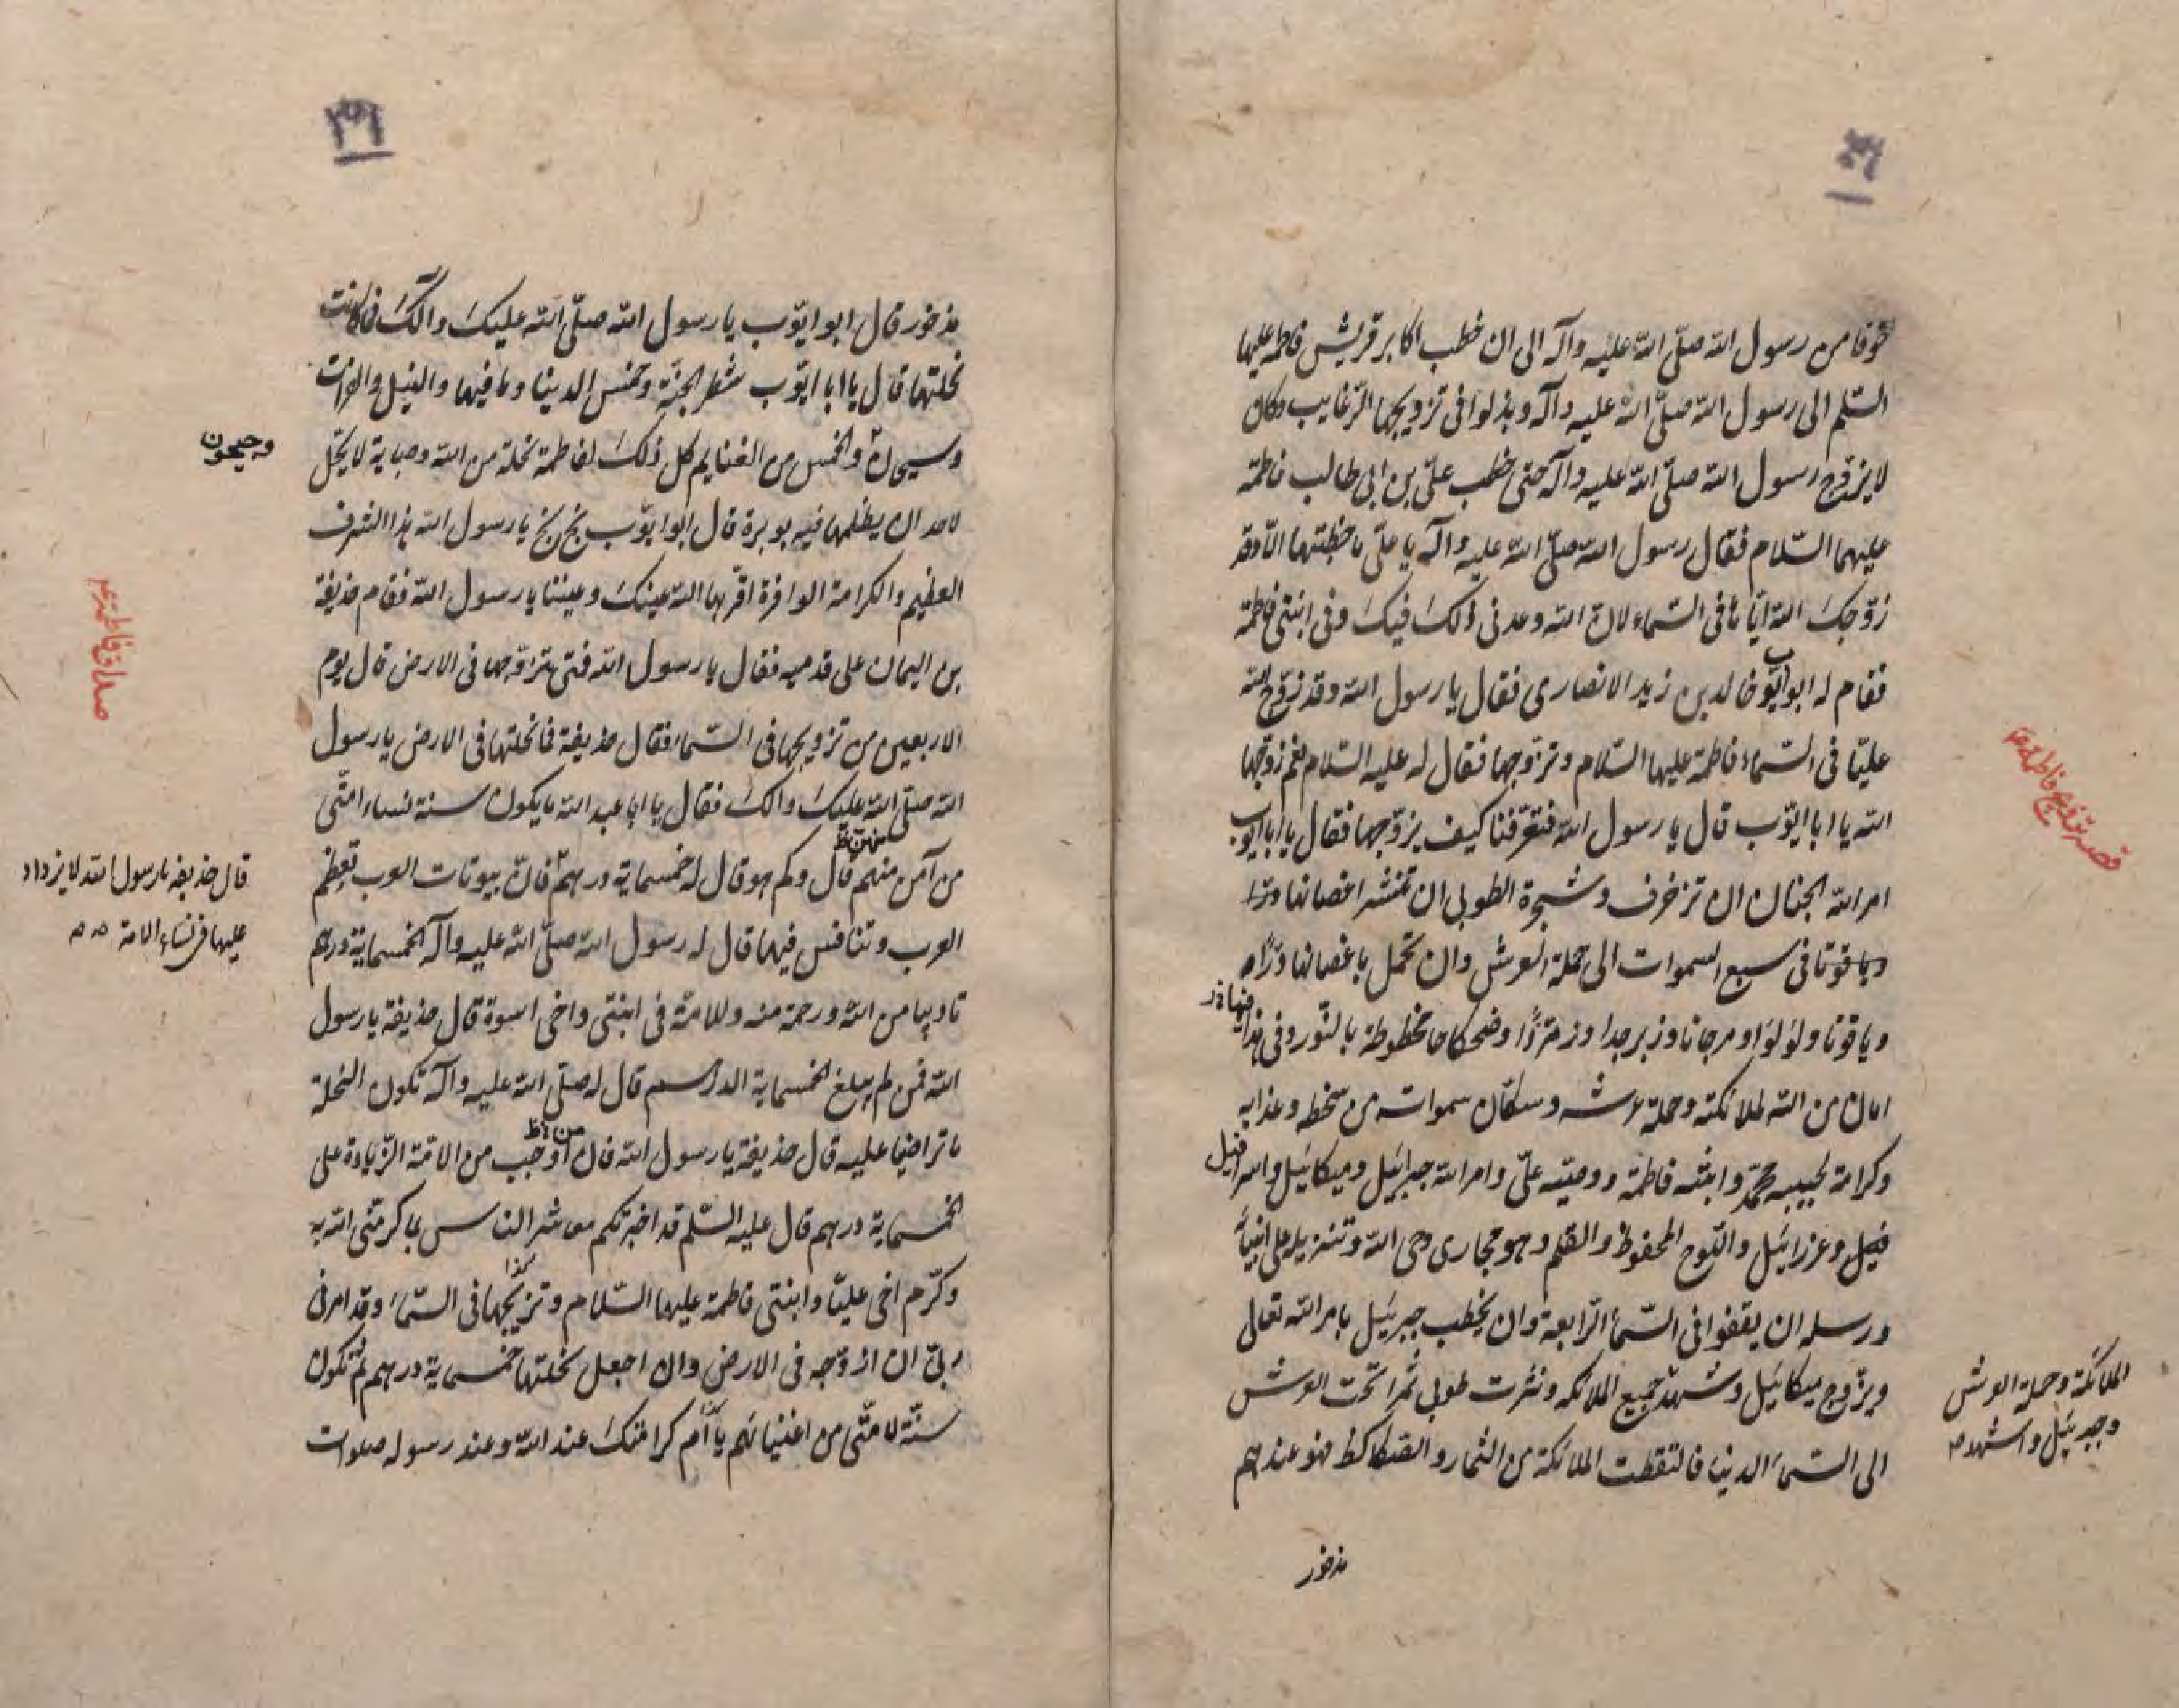 خوفا من رسول الله صلّى الله عليه وآله الى ان خطب اكابر قريش فاطمة عليها
السّلم الى رسول الله صلّى الله عليه وآله وبذلوا فى تزويجها الرّغايب وكان
لا يزوّج رسول الله صلّى الله عليه وآله حتى خطب علىّ بن ابى طالب فاطمة
عليهما السّلام فقال رسول الله صلّى الله عليه وآله يا علىّ ما خطبتها الّا وقد
زوّجك الله ايّاها فى السّماء لانّ الله وعدنى ذلك فيك وفى ابنتى فاطمة
فقام له ابو ايّوب خالد بن زيد الانصارى فقال يا رسول الله وقد زوّج الله
عليّا فى السّماء فاطمة عليها السّلام وتزوجها فقال له عليه السّلام نعم زوّجها
الله يا ابا ايّوب قال يا رسول الله فتعرّفنا كيف يزوّجها فقال يا ابا ايوب
قصة تزويج فاطمة ع
امر الله الجنان ان تزخرف وشجرة الطوبى ان تنشر اغصانها
فى سبع السموات الى حملة العرش وان تحمل باغصانها درّا
وياقوتا ولؤلؤا ومرجانا وزبرجدا وزمرّدًا وصكاكا مخطوطة بالنّور
امان من الله لملائكته وحملة عرشه وسكّان سمواته من سخطه وعذابه
وكرامة لحبيبه محمّد وابنته فاطمة ووصيّه علىّ وامر الله جبرائيل وميكائيل واسرافيل
وعزرائيل واللّوح المحفوظ والقلم وهو مجارى وحى الله وتنزيله على انبيائه
ورسله ان يقفوا فى السّماء الرّابعة وان يخطب جبرئيل بامر الله تعالى
ويزّوج ميكائيل وشهد جميع الملائكه ونثرت طوبى ثمرا تحت العرش
الملائكة وحملة العرش
وجبرئيل واشهد
الى السّماء الدنيا فالتقطت الملائكة من الثمار والصكاك فهو عندهم
مذخور
مذخور قال ابو ايّوب يا رسول الله صلّى الله عليك وآلك فما كانت
نحلتها قال يا ابا ايّوب شطر الجنّة وخمس الدينا وما فيها والنيل والفرات
وسيحان والخمس من الغنايم كل ذلك لفاطمة نحلة من الله وحباية لا يحلّ
وجيحون
لاحد ان يظلمها فيه بوبرة قال ابو ايّوب بخ بخ يا رسول الله هذا الشرف
العظيم والكرامة الوافرة اقرّ بها الله عينك وعيننا يا رسول الله فقام حذيفة
صداق فاطمة ع
بن اليمان على قدميه فقال يا رسول الله فتى تزوّجها فى الارض قال يوم
الاربعين من تزويجها فى السّماء فقال حذيفة فما نحلتها فى الارض يا رسول
الله صلّى الله عليك وآلك فقال يا ابا عبد الله ما يكون سنة نساء امّتى
من آمن منهم قال وكم هو قال له خمسماية درهم فانّ بيوتات العرب تعظم
قال حذيفة يا رسول الله لا يزداد
عليها فى نساء الامة
العرب وتنافس فيها قال له رسول الله صلّى الله عليه وآله الخمسماية درهم
تاديبا من الله ورحمة منه وللامّة فى ابنتى واخى اسوة قال حذيفة يا رسول
الله فمن لم يبلغ الخمسماية الدرهم قال له صلّى الله عليه وآله تكون النحلة
ما تراضيا عليه قال حذيفة يا رسول الله فان اوجب من الامّة الزّيادة على
الخمسماية درهم قال عليه السّلم قد اخبرتكم معاشر الناس بما كرمنى الله به
وكرّم اخى عليّا وابنتى فاطمة عليها السّلام وتزيجها فى السّماء وقد امرنى
كذا
ربّى ان ازوّجه فى الارض وان اجعل نحلتها خمسماية درهم ثم تكون
سنّة لامّتى من اغنيائهم يا كرامتك عند الله وعند رسوله صلوات